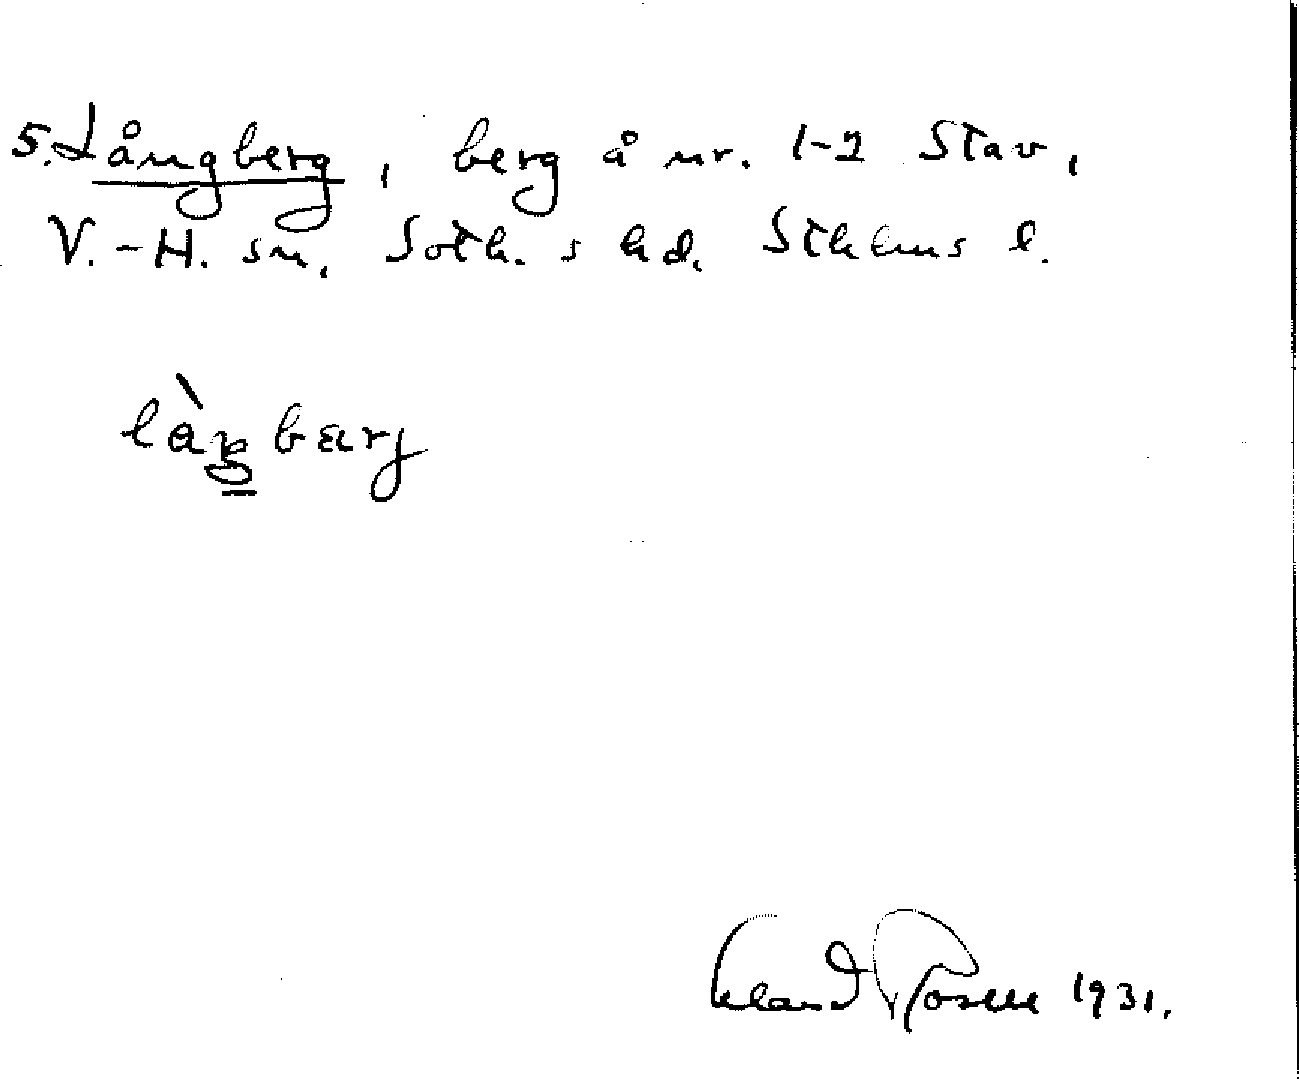 5. Långberg, berg å nr. 1-2 Stav,
V.-H. sn, Soth. s hd. Sthlms l.
Erland Rosell 1931.